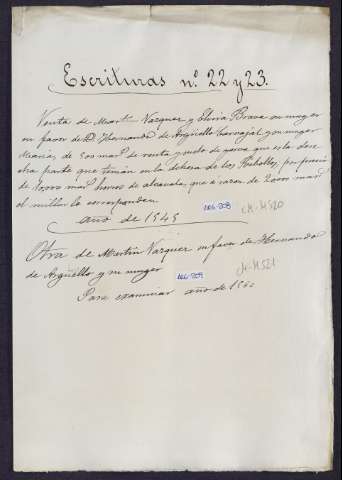 Escrituras nº 22 y 23.
Venta de Martn Vazquez y Elvira Brava su muger
en favor de D. Hernando de Argüello Carvajal y su muger
Mencia, de 500 marˢ de renta y suelo de yerva que es la doce
ava parte que tenian en la dehesa de los Rebollos, por precio
de 10,000 marˢ horros de alcavala, que á razon de 20000 mars
el millar le corresponden.
año de 1545
106-208 CM-M520
Otra de Martin Vazquez en favor de Hernando
de Argüello y su muger
106-209 CM-M521
Para examinar año de